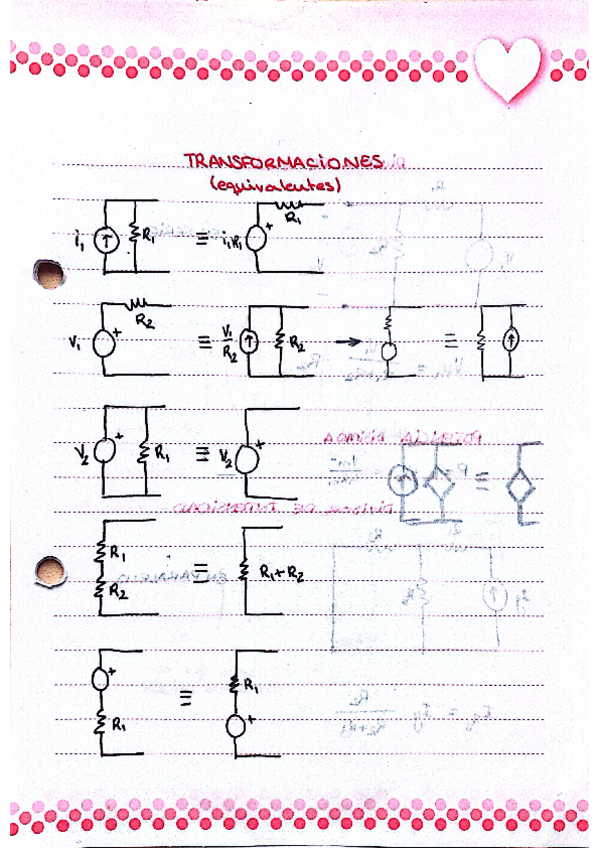 TRANSFORMACIONES
(equivalentes)
i₁ R₁ ≡ i₁R₁ + R₁
V₁ + R₂ ≡ V₁/R₂ R₂ → ≡
V₂ + R₁ ≡ V₂ +
≡
R₁ R₂ ≡ R₁+R₂
+ R₁ ≡ R₁ +